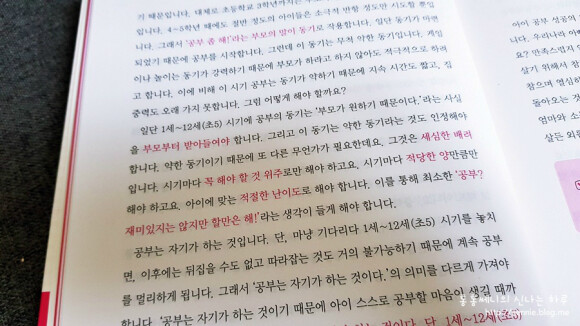 기 때문입니다. 대체로 초등학교 3학년까지는 부모
입니다. 4~5학년 때에도 절반 정도의 아이들은 소극적 반항 정도만 시도할 뿐입
니다. 그래서 '공부 좀 해!'라는 부모의 말이 동기로 작용합니다. 일단 동기가 마련
되었기 때문에 공부를 시작합니다. 그런데 이 동기는 무척 약한 동기입니다. 게임
이나 놀이는 동기가 강력하기 때문에 부모가 하라고 하지 않아도 적극적으로 하려
고 합니다. 이에 비해 이 시기 공부는 동기가 약하기 때문에 지속 시간도 짧고, 집
중력도 오래 가지 못합니다. 그럼 어떻게 해야 할까요?
일단 1세~12세(초5) 시기에 공부의 동기는 '부모가 원하기 때문이다.'라는 사실
을 부모부터 받아들여야 합니다. 그리고 이 동기는 약한 동기라는 것도 인정해야
합니다. 약한 동기이기 때문에 또 다른 무언가가 필요한데요, 그것은 세심한 배려
입니다. 시기마다 꼭 해야 할 것 위주로만 해야 하고요, 시기마다 적당한 양만큼만
해야 하고요. 아이에 맞는 적절한 난이도로 해야 합니다. 이를 통해 최소한 '공부?
재미있지는 않지만 할만은 해!'라는 생각이 들게 해야 합니다.
공부는 자기가 하는 것입니다. 단, 마냥 기다리다 1세~12세(초5) 시기를 놓치
면, 이후에는 뒤집을 수도 없고 따라잡는 것도 거의 불가능하기 때문에 계속 공부
를 멀리하게 됩니다. 그래서 '공부는 자기가 하는 것이다.'의 의미를 다르게 가져야
합니다. '공부는 자기가 하는 것이기 때문에 아이 스스로 공부할 마음이 생길 때까
하는 것이다. 단, 1세~12세(초5)
아이 공부 성공의
니다. 우리나라 아빠
요? 만족스럽지
살기 위해서 참
참으며 열심히
돌아오는 것
엄마와 소
살든 외